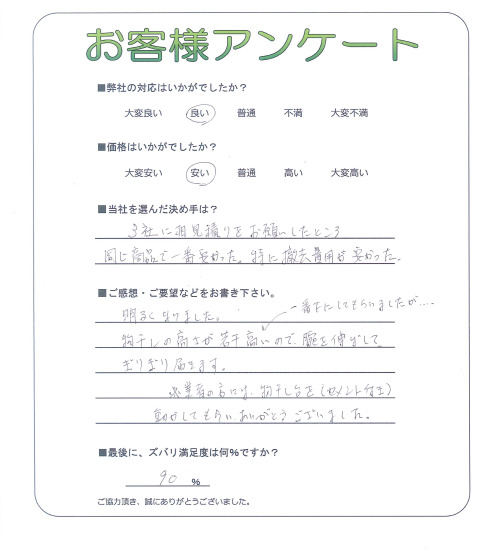 お客様アンケート
■弊社の対応はいかがでしたか？
大変良い 良い 普通 不満 大変不満
■価格はいかがでしたか？
大変安い 安い 普通 高い 大変高い
■当社を選んだ決め手は？
3社に相見積りをお願いしたところ
同じ商品で一番安かった。特に撤去費用が安かった。
■ご感想・ご要望などをお書き下さい。
一番下にしてもらいましたが....
明るくなりました。
物干しの高さが若干高いので、腕を伸ばして
ぎりぎり届きます。
作業員の方には、物干し台を(セメント付き)
動かしてもらい、ありがとうございました。
■最後に、ズバリ満足度は何%ですか？
90 %
ご協力頂き、誠にありがとうございました。